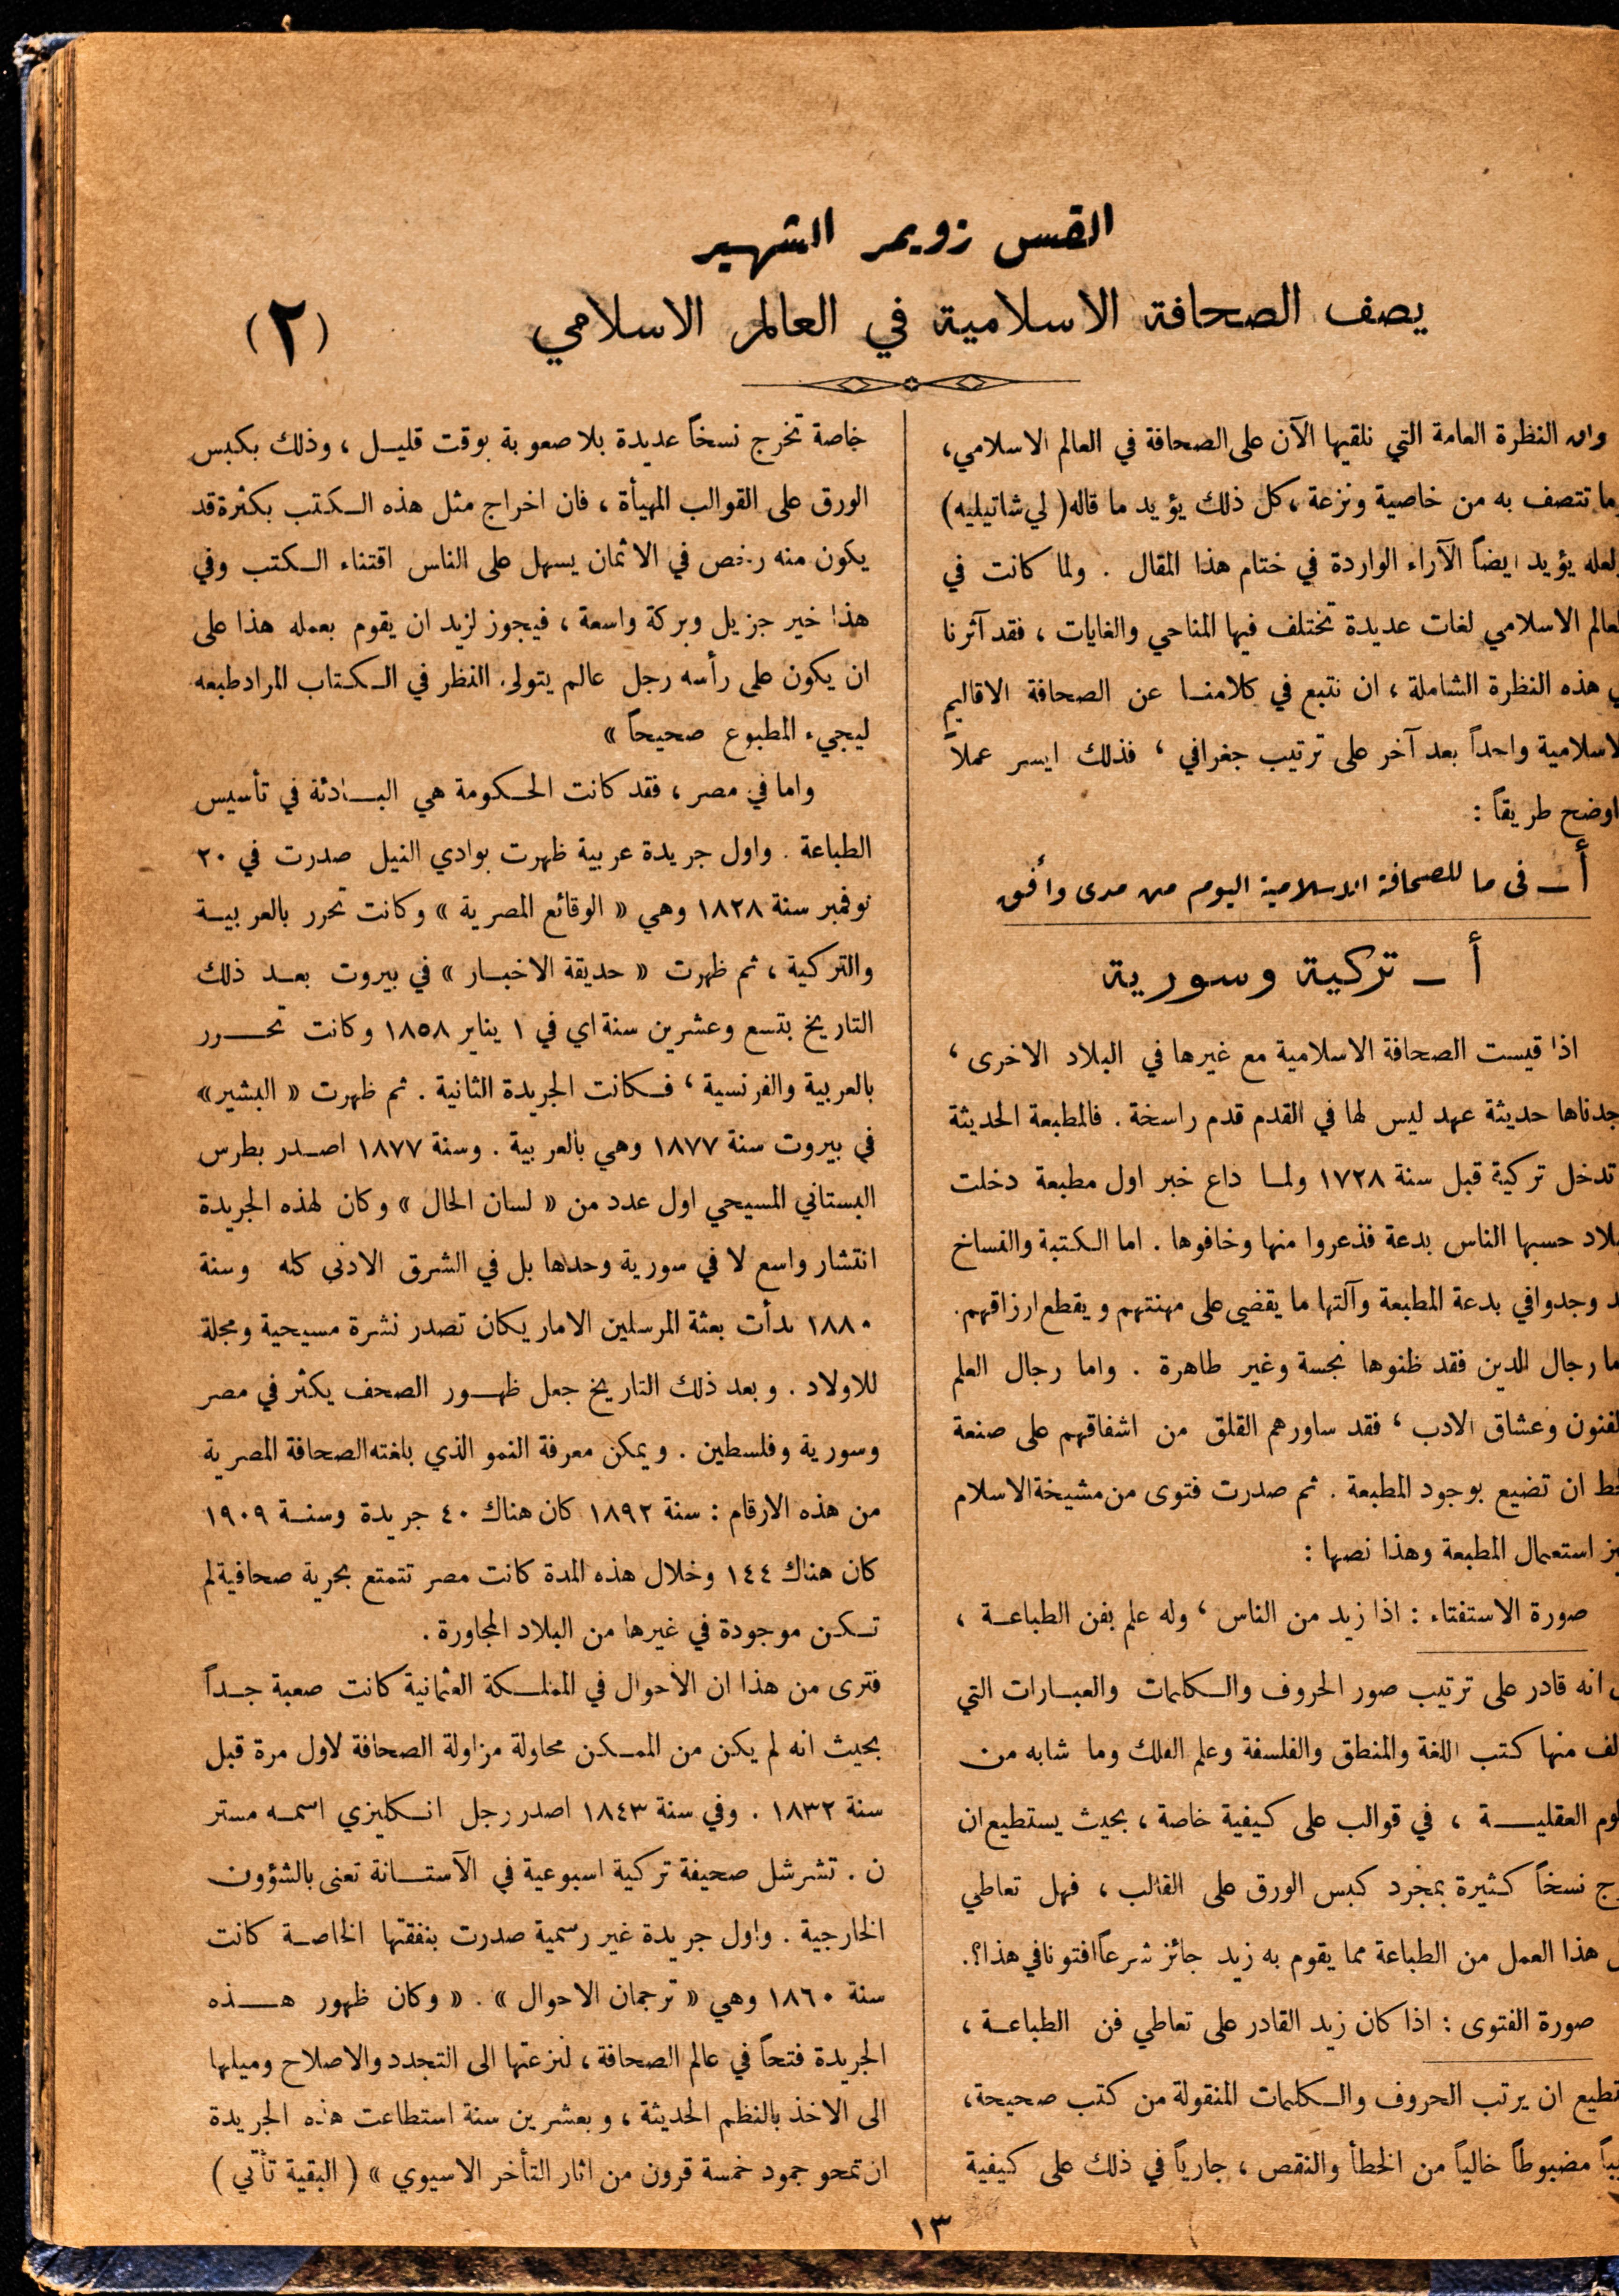 القس زويمر الشهير
يصف الصحافة الاسلامية في العالم الاسلامي (٢)
وان النظرة العامة التي نلقيها الآن على الصحافة في العالم الاسلامي،
ما تتصف به من خاصية ونزعة، كل ذلك يؤيد ما قاله (لي شاتيليه)
لعله يؤيد ايضاً الآراء الواردة في ختام هذا المقال . ولما كانت في
لعالم الاسلامي لغات عديدة تختلف فيها المناحي والغايات ، فقد آثرنا
هذه النظرة الشاملة ، ان نتبع في كلامنا عن الصحافة الاقاليم
لاسلامية واحداً بعد آخر على ترتيب جغرافي ، فذلك ايسر عملاً
اوضح طريقاً :
أ ــ في ما للصحافة الاسلامية اليوم من مدى وأفق
أ ــ تركية وسورية
اذا قيست الصحافة الاسلامية مع غيرها في البلاد الاخرى ،
جدناها حديثة عهد ليس لها في القدم قدم راسخة . فالمطبعة الحديثة
تدخل تركية قبل سنة ١٧٢٨ ولما داع خبر اول مطبعة دخلت
لاد حسبها الناس بدعة فذعروا منها وخافوها . اما الكتبة والنساخ
د وجدوا في بدعة المطبعة وآلتها ما يقضي على مهنتهم ويقطع ارزاقهم.
ما رجال الدين فقد ظنوها نجسة وغير طاهرة . واما رجال العلم
لفنون وعشاق الادب ، فقد ساورهم القلق من اشفاقهم على صنعة
خط ان تضيع بوجود المطبعة . ثم صدرت فتوى من مشيخة الاسلام
يز استعمال المطبعة وهذا نصها :
صورة الاستفتاء : اذا زيد من الناس ، وله علم بفن الطباعة ،
انه قادر على ترتيب صور الحروف والكلمات والعبارات التي
لف منها كتب اللغة والمنطق والفلسفة وعلم الفلك وما شابه من
لوم العقلية ، في قوالب على كيفية خاصة ، بحيث يستطيع ان
رج نسخاً كثيرة بمجرد كبس الورق على القالب ، فهل تعاطي
هذا العمل من الطباعة مما يقوم به زيد جائز شرعاً افتونا في هذا؟.
صورة الفتوى : اذا كان زيد القادر على تعاطي فن الطباعة ،
تطيع ان يرتب الحروف والكلمات المنقولة من كتب صحيحة،
يباً مضبوطاً خالياً من الخطأ والنقص ، جارياً في ذلك على كيفية
خاصة تخرج نسخاً عديدة بلا صعوبة بوقت قليل ، وذلك بكبس
الورق على القوالب المهيأة ، فان اخراج مثل هذه الكتب بكثرة قد
يكون منه رخص في الاثمان يسهل على الناس اقتناء الكتب وفي
هذا خير جزيل وبركة واسعة ، فيجوز لزيد ان يقوم بعمله هذا على
ان يكون على رأسه رجل عالم يتولى النظر في الكتاب المراد طبعه
ليجيء المطبوع صحيحاً »
واما في مصر ، فقد كانت الحكومة هي البادئة في تأسيس
الطباعة . واول جريدة عربية ظهرت بوادي النيل صدرت في ٢٠
نوفمبر سنة ١٨٢٨ وهي « الوقائع المصرية » وكانت تحرر بالعربية
والتركية ، ثم ظهرت « حديقة الاخبار » في بيروت بعد ذلك
التاريخ بتسع وعشرين سنة اي في ١ يناير ١٨٥٨ وكانت تحرر
بالعربية والفرنسية ، فكانت الجريدة الثانية . ثم ظهرت « البشير »
في بيروت سنة ١٨٧٧ وهي بالعربية . وسنة ١٨٧٧ اصدر بطرس
البستاني المسيحي اول عدد من « لسان الحال » وكان لهذه الجريدة
انتشار واسع لا في سورية وحدها بل في الشرق الادنى كله وسنة
١٨٨٠ بدأت بعثة المرسلين الامار يكان تصدر نشرة مسيحية ومجلة
للاولاد . وبعد ذلك التاريخ جعل ظهور الصحف يكثر في مصر
وسورية وفلسطين . ويمكن معرفة النمو الذي بلغته الصحافة المصرية
من هذه الارقام : سنة ١٨٩٢ كان هناك ٤٠ جريدة وسنة ١٩٠٩
كان هناك ١٤٤ وخلال هذه المدة كانت مصر تتمتع بحرية صحافية لم
تكن موجودة في غيرها من البلاد المجاورة .
فترى من هذا ان الأحوال في المملكة العثمانية كانت صعبة جداً
بحيث انه لم يكن من الممكن محاولة مزاولة الصحافة لاول مرة قبل
سنة ١٨٣٢ . وفي سنة ١٨٤٣ اصدر رجل انكليزي اسمه مستر
ن . تشرشل صحيفة تركية اسبوعية في الآستانة تعنى بالشؤون
الخارجية . واول جريدة غير رسمية صدرت بنفقتها الخاصة كانت
سنة ١٨٦٠ وهي « ترجمان الاحوال » . « وكان ظهور هذه
الجريدة فتحاً في عالم الصحافة ، لنزعتها الى التجدد والاصلاح وميلها
الى الاخذ بالنظم الحديثة ، وبعشرين سنة استطاعت هذه الجريدة
ان تمحو جمود خمسة قرون من اثار التأخر الاسيوي » ( البقية تأتي )
١٣